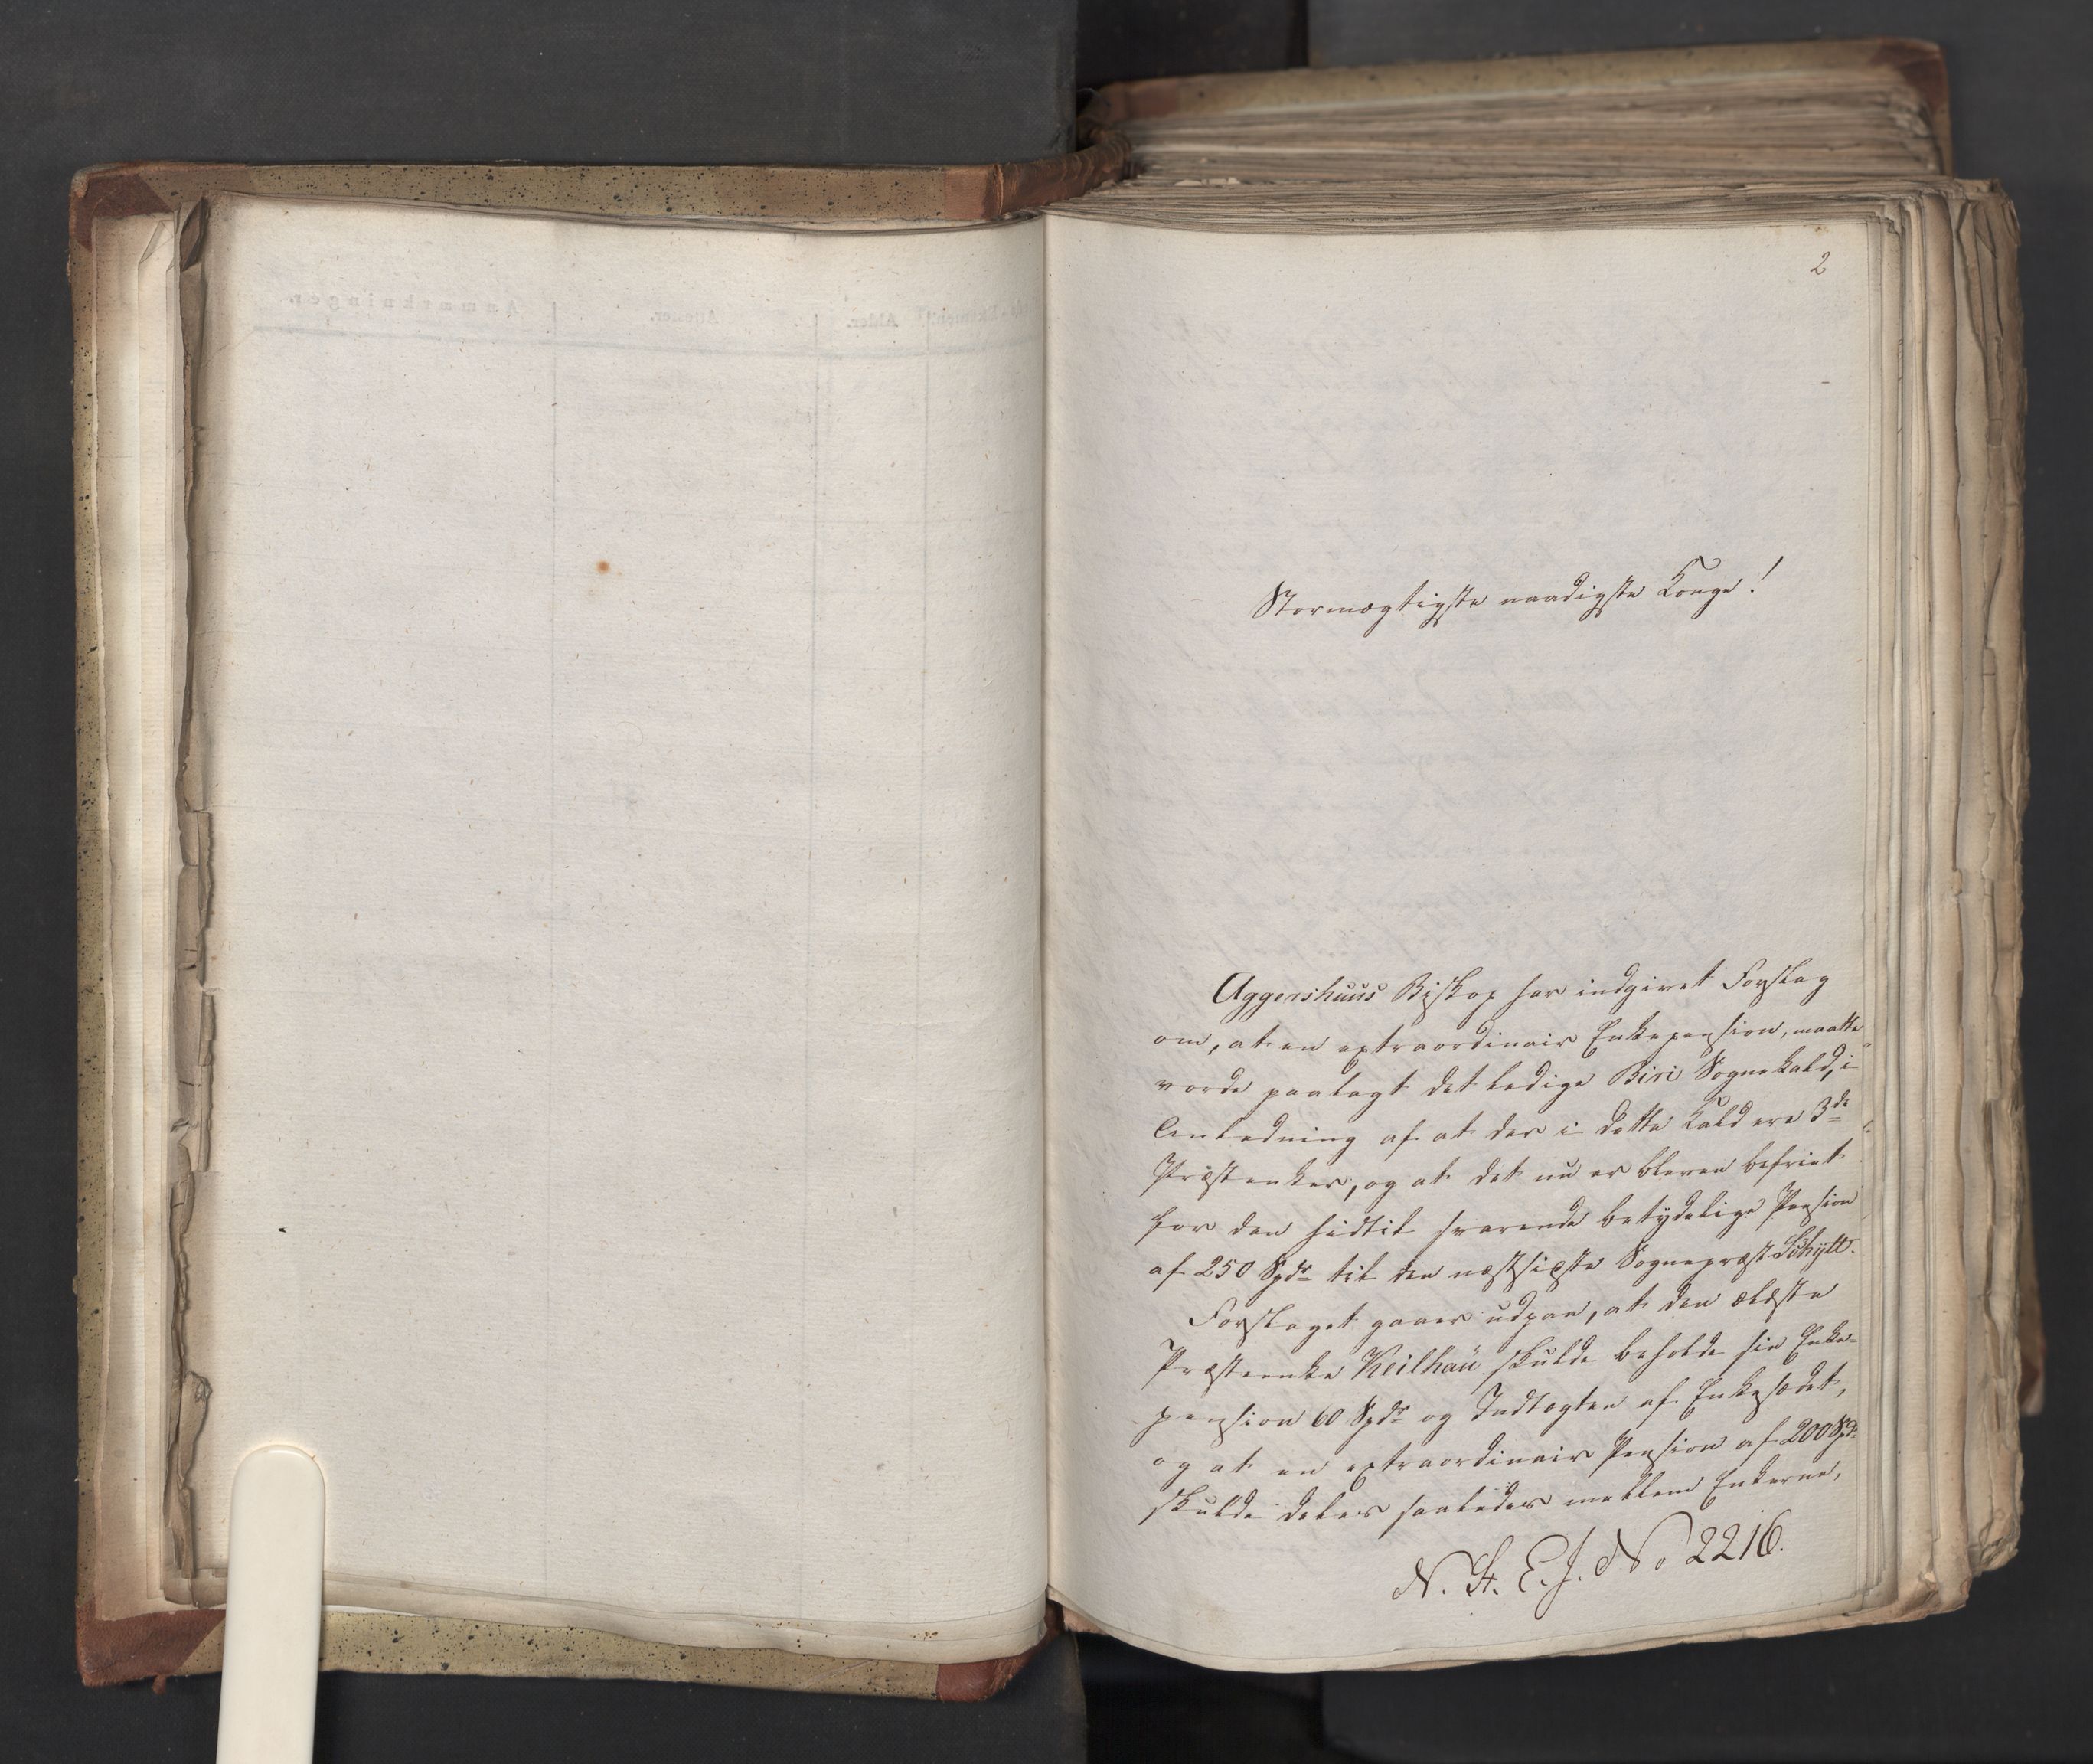 2
Stormægtigste naadigste Konge!
Aggershuus Biskop har indgivet Forslag
om, at en extraordinair Enkepension, maatte
vorde paalagt det ledige Biri Sognekald, i
Anledning af at der i dette Kald ere 3de
Præstenker, og at det nu er bleven befriet
for den hidtil svarende betydelige Pension
af 250 Spdr til den næstsidste Sognepræst Schytt.
Forslaget gaaer ud paa, at den ældste
Præsteenke Keilhau skulde beholde sin Enke-
pension 60 Spdr og Indtægten af Enkesædet,
og at en extraordinair Pension af 200 Spd
skulde deles saaledes mellem Enkerne,
N. St. E. J. No 2216.